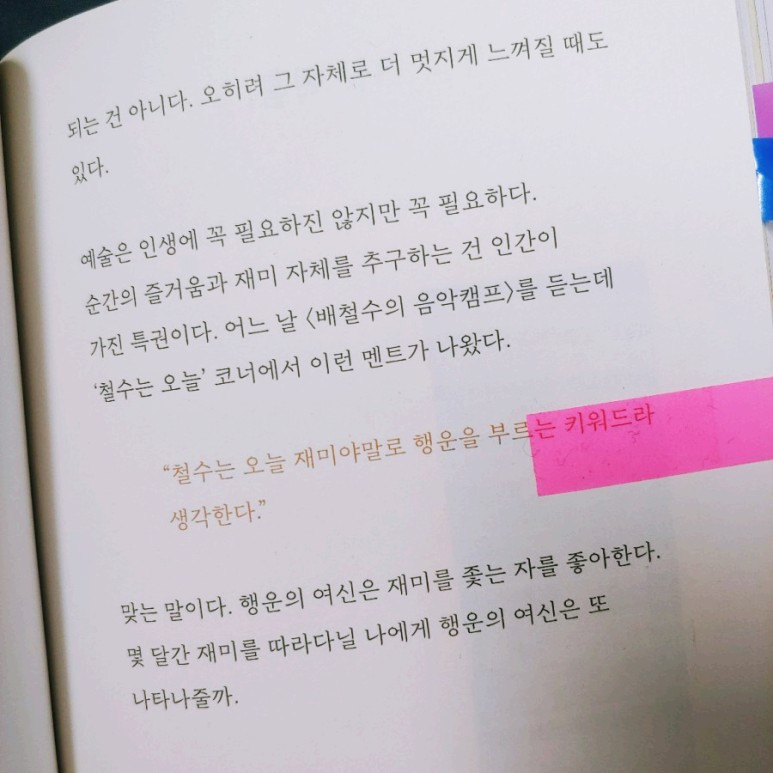 되는 건 아니다. 오히려 그 자체로 더 멋지게 느껴질 때도
있다.
예술은 인생에 꼭 필요하진 않지만 꼭 필요하다.
순간의 즐거움과 재미 자체를 추구하는 건 인간이
가진 특권이다. 어느 날 〈배철수의 음악캠프〉를 듣는데
‘철수는 오늘’ 코너에서 이런 멘트가 나왔다.
“철수는 오늘 재미야말로 행운을 부르는 키워드라
생각한다.”
맞는 말이다. 행운의 여신은 재미를 좇는 자를 좋아한다.
몇 달간 재미를 따라다닐 나에게 행운의 여신은 또
나타나줄까.